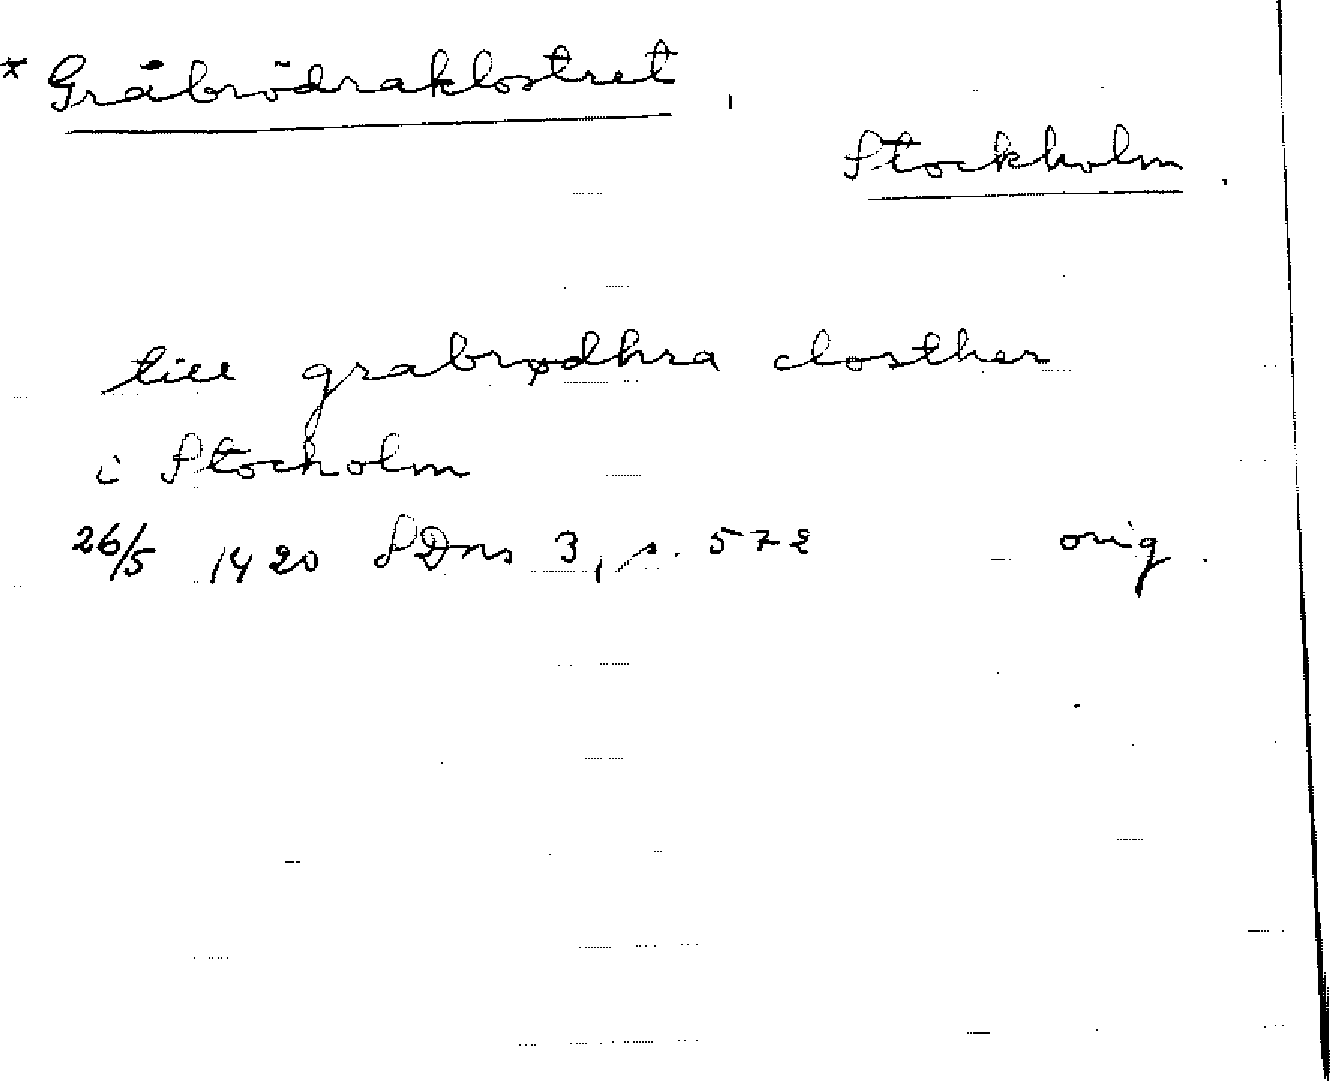 * Gråbrödraklostret
Stockholm.
till grabrødhra closther
i Stocholm
26/5 1420 SDns 3, s. 572 orig.